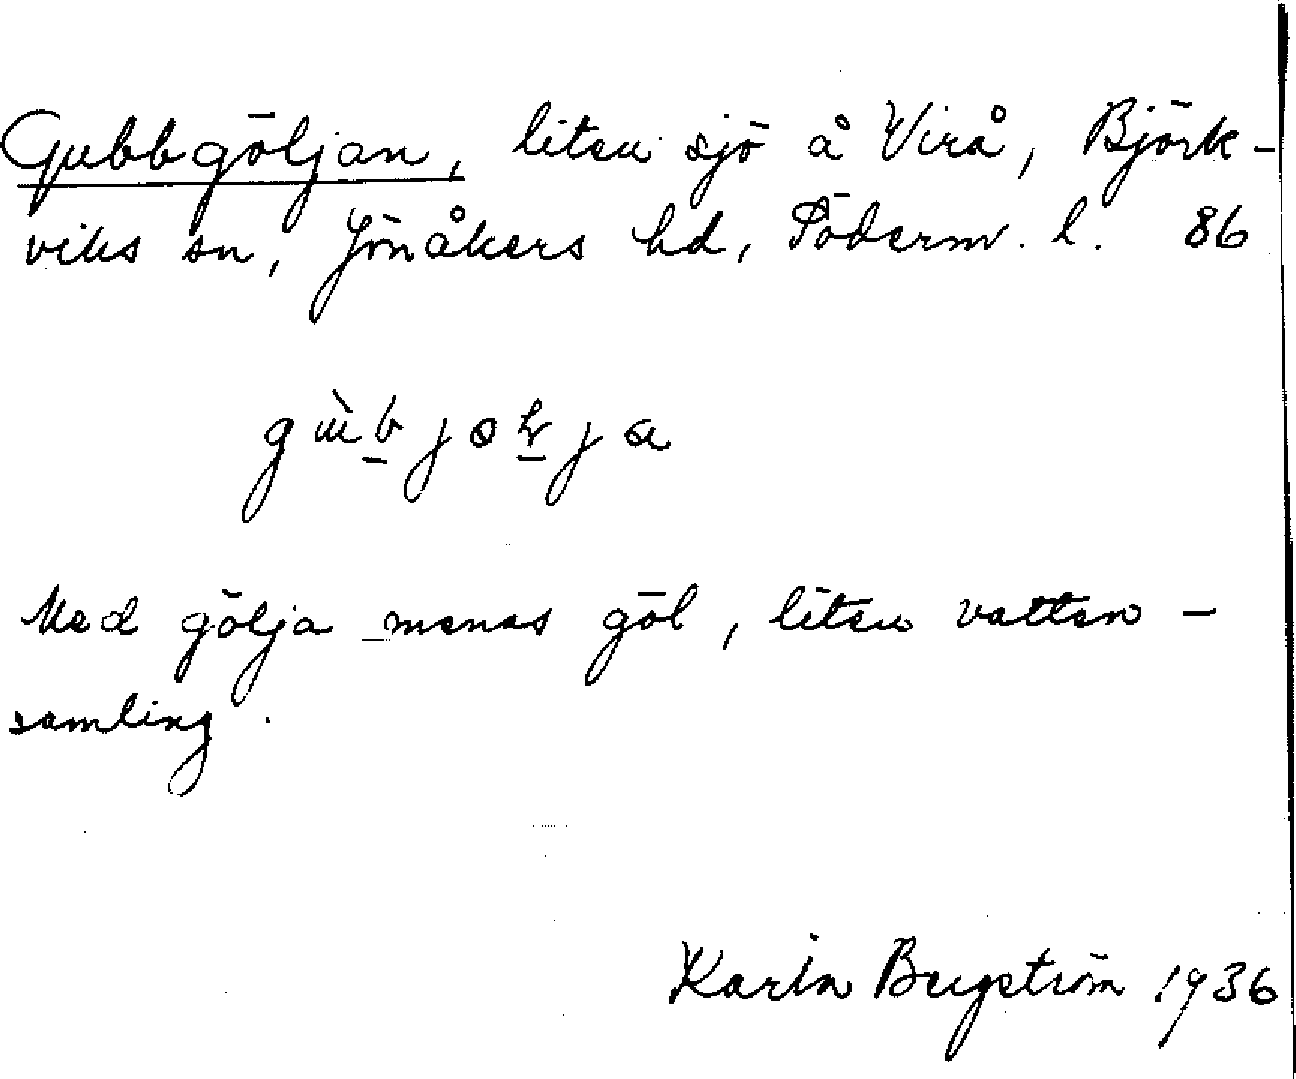 Gubbgöljan, liten sjö å Virå, Björk-
viks sn, Jönåkers hd, Söderm. l. 86
Med gölja menas göl, liten vatten-
samling.
Karin Bergström 1936